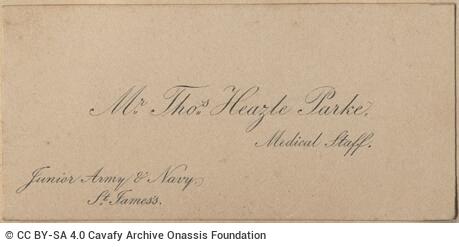 Mr. Thos. Heazle Parke.
Medical Staff.
Junior Army & Navy.
St. James's.
© CC BY-SA 4.0 Cavafy Archive Onassis Foundation